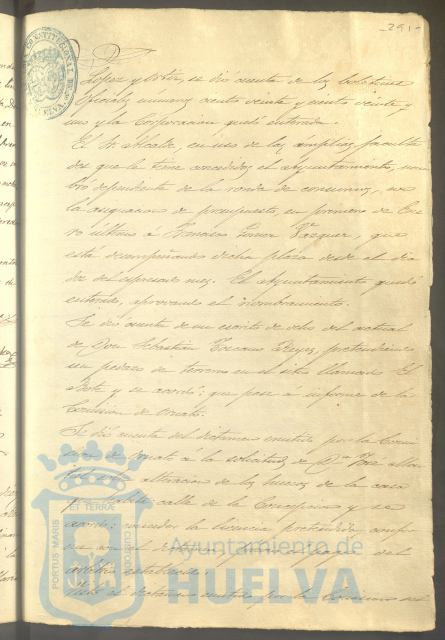 291
Lopez y Ortiz, se dió cuenta de los boletines
oficiales números ciento veinte y ciento veinte y
uno y la Corporacion quedó enterada.
El Sr Alcalde, en uso de las amplias faculta
des que le tiene concedidas el Ayuntamiento, nom
bró dependiente de la ronda de consumos, con
la asignacion de presupuesto, en primero de Ene
ro último á Francisco Vazquez, que
está desempeñando dicha plaza desde el dia
dos del espresado mes. El Ayuntamiento quedó
enterado, aprovando el nombramiento.
Se dió cuenta de un escrito de ocho del actual
de Don Sebastian Toscano Reyes, pretendiendo
un pedazo de terreno en el sitio llamado El
y se acordó: que pase á informe de la
Comision de Ornato.
Se dió cuenta del dictamen emitido por la Comi
sion de Ornato á la solicitud de
alteracion de los huecos de la casa
calle de la Concepcion y se
acordó: conceder la licencia pretendida
con el
Visto el dictamen emitido por la Comision de
PORTUS MARIS
ET TERRÆ
CUSTODIA
Ayuntamiento de
HUELVA